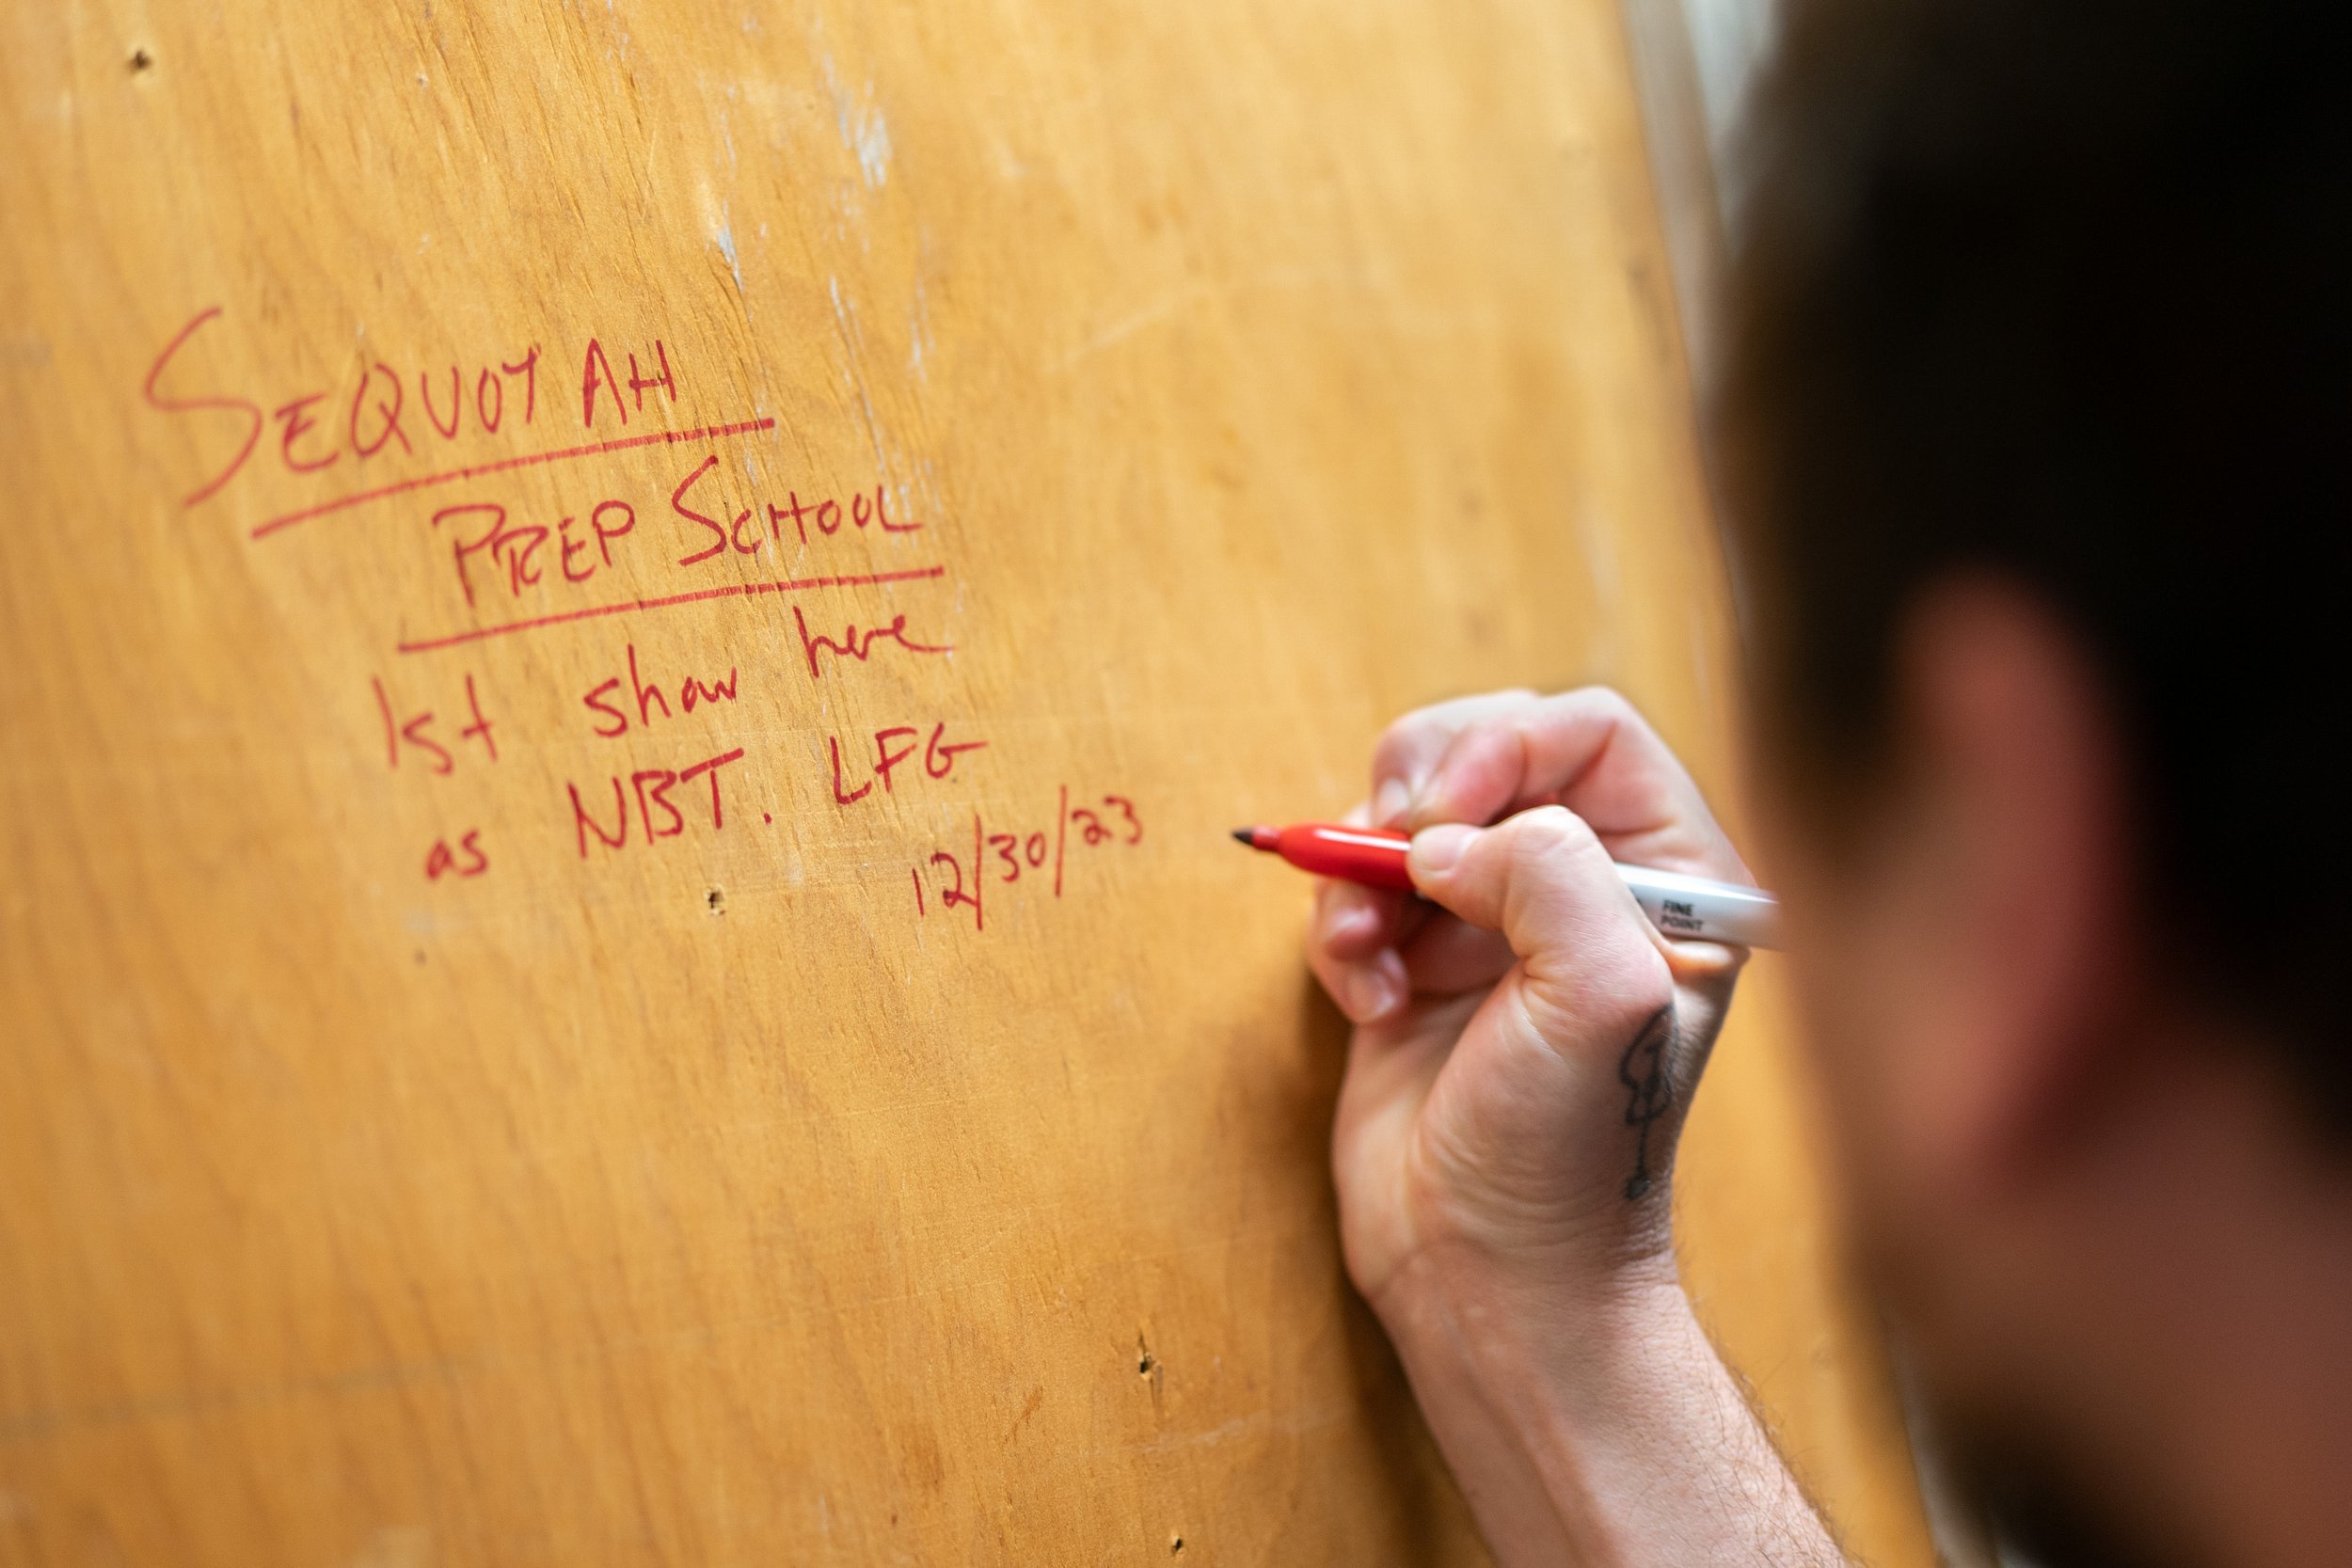 SEQUOYAH
PREP SCHOOL
1st show here
as NBT. LFG
12/30/23
FINE
POINT